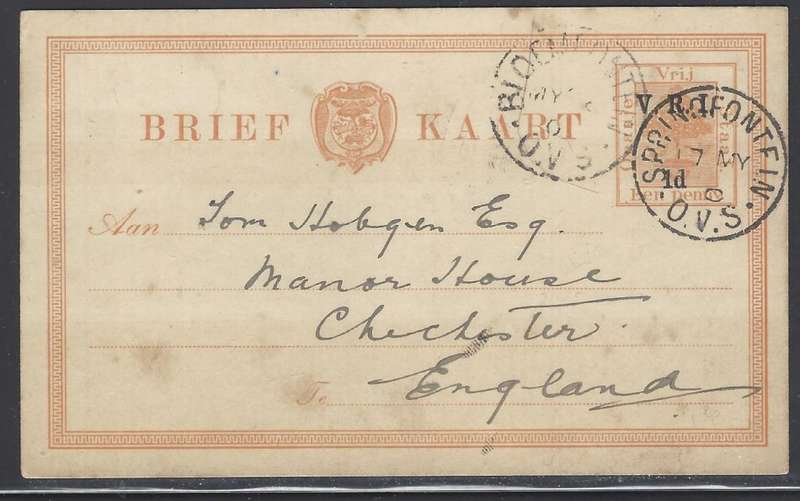 BRIEF KAART
Vrij
V. R. I.
1d
Een penny
BLOEMFONTEIN
MY
O.V.S.
SPRINGFONTEIN
17 MY
0
O.V.S.
Aan Tom Hobgen Esq.
Manor House
Chechester
To England